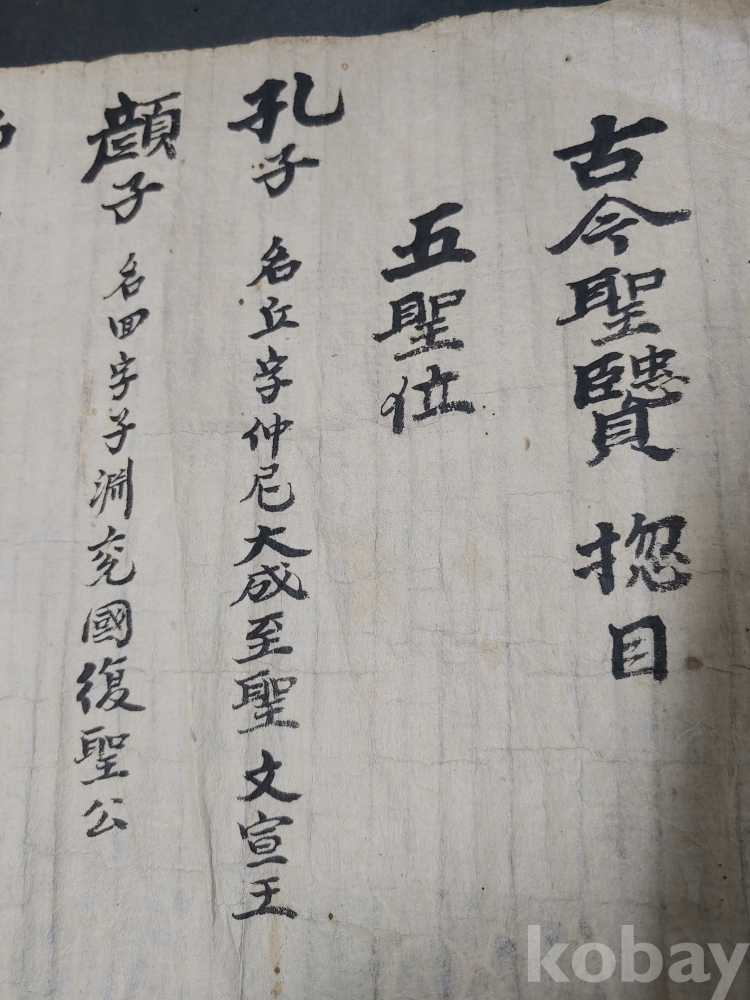 古今聖贒 揔目
五聖位
孔子 名丘字仲尼大成至聖文宣王
顔子 名回字子淵兗國復聖公
kobay